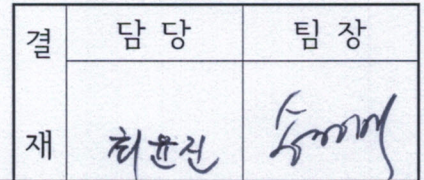 결재
담 당
팀 장
최윤진